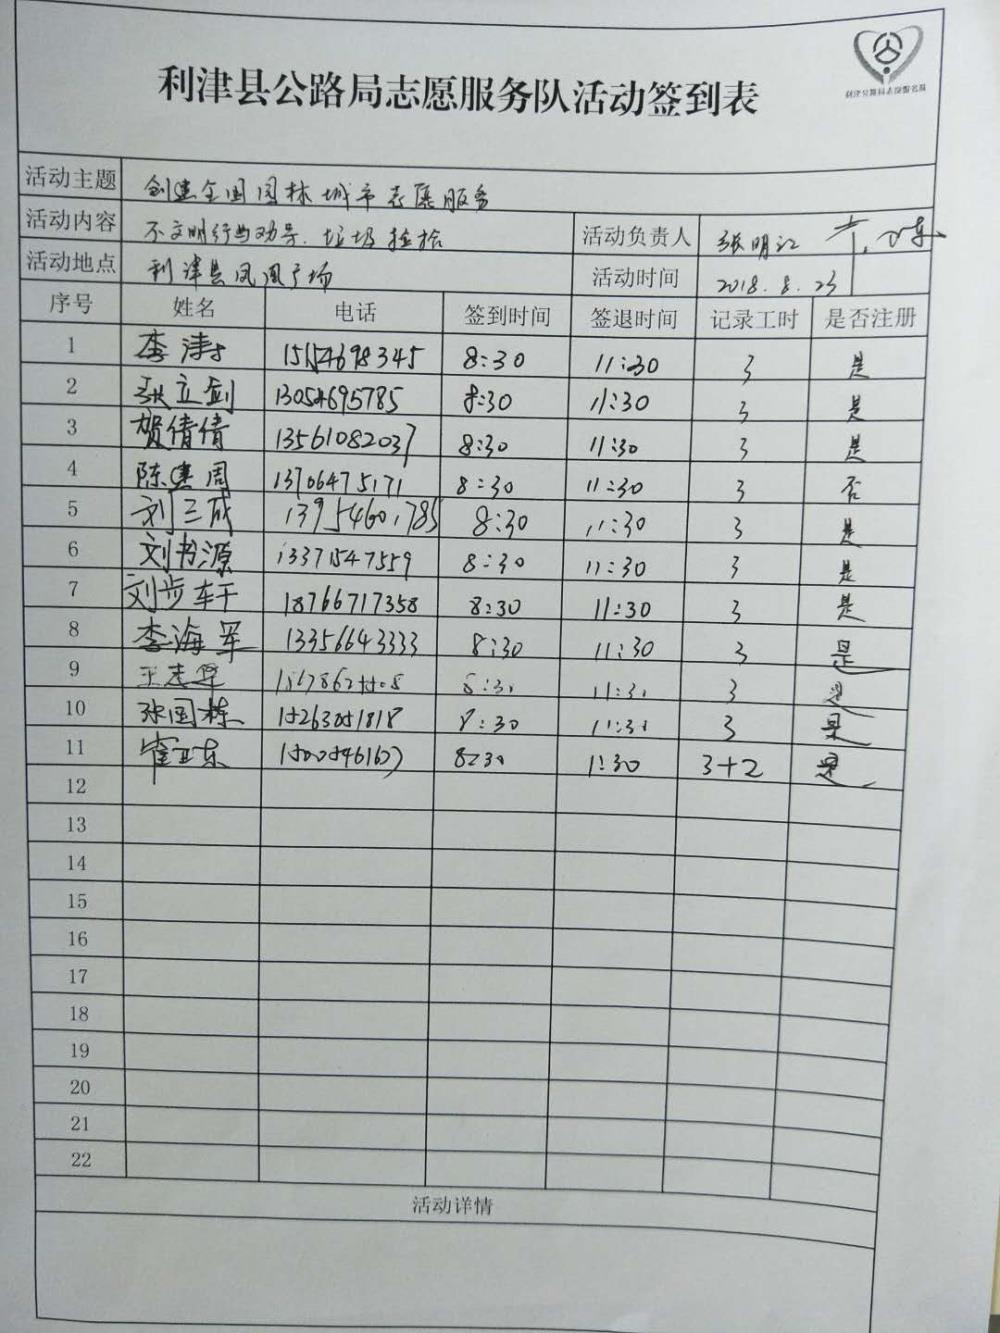 利津县公路局志愿服务队活动签到表
活动主题 创建全国园林城市志愿服务
活动内容 不文明行为劝导、垃圾捡拾 活动负责人 张明江
活动地点 利津县凤凰广场 活动时间 2018.8.23
序号 姓名 电话 签到时间 签退时间 记录工时 是否注册
1 李涛 15154698345 8:30 11:30 3 是
2 张立剑 13054695785 8:30 11:30 3 是
3 贺倩倩 13561082037 8:30 11:30 3 是
4 陈建周 13706475171 8:30 11:30 3 否
5 刘三成 13954601785 8:30 11:30 3 是
6 刘书源 13371547559 8:30 11:30 3 是
7 刘步轩 18766717358 8:30 11:30 3 是
8 李海军 13356643333 8:30 11:30 3 是
9 王志华 8:30 11:30 3 是
10 张国栋 15263051818 8:30 11:30 3 是
11 崔卫东 8:30 1:30 3+2 是
12
13
14
15
16
17
18
19
20
21
22
活动详情